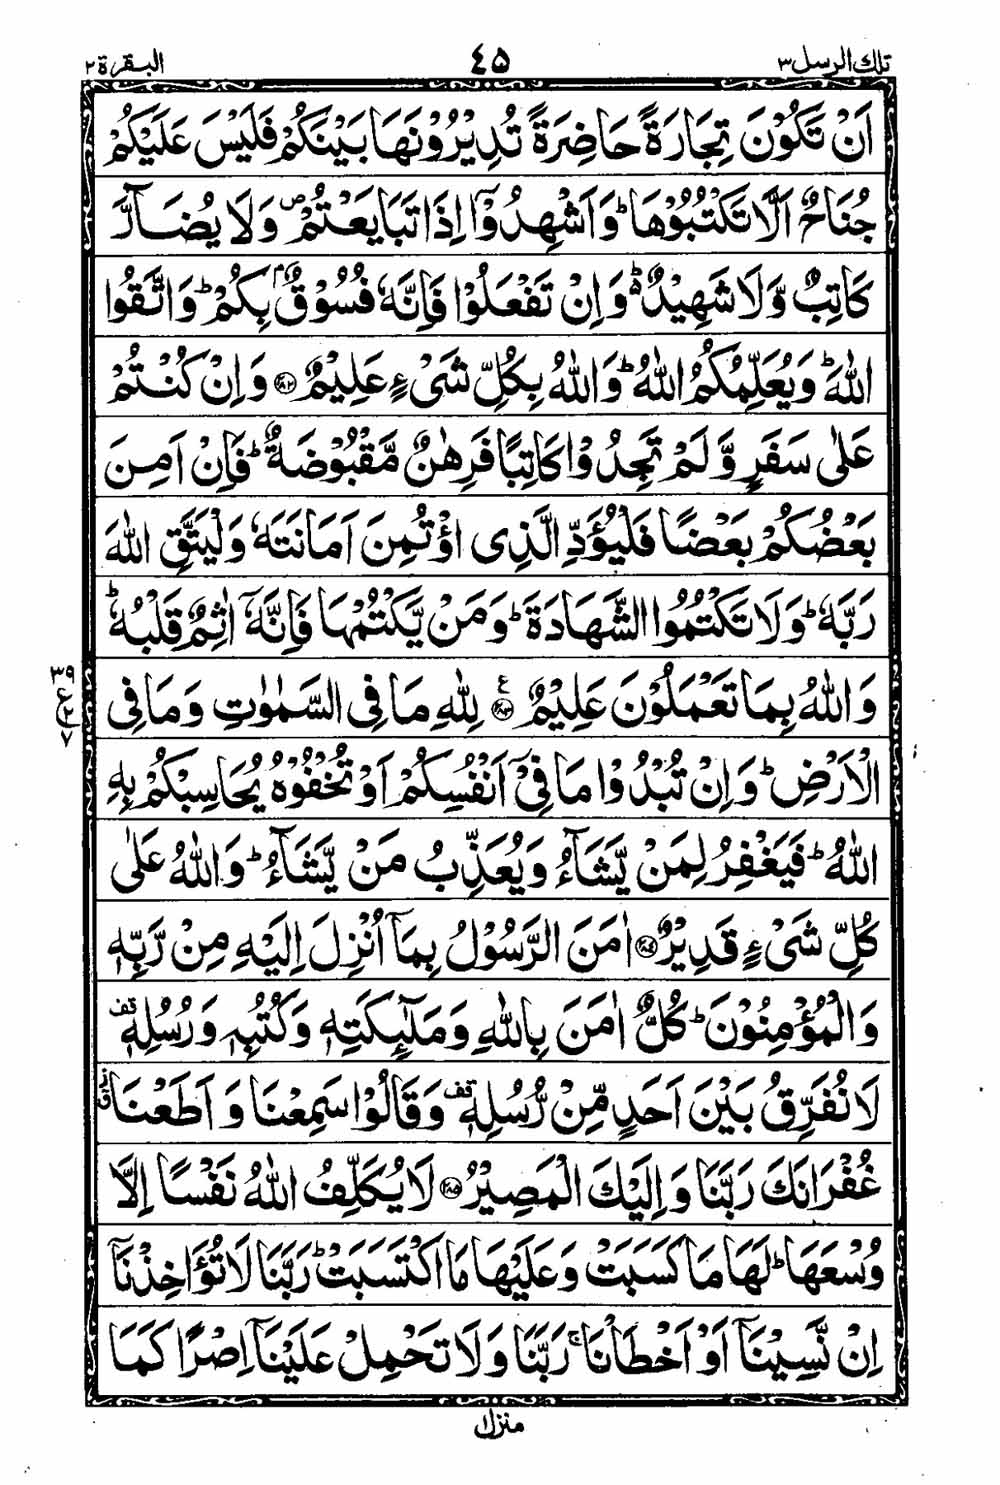 تلك الرسل ٣
٤٥
البقرة ٢
اَنْ تَكُوْنَ تِجَارَةً حَاضِرَةً تُدِيْرُوْنَهَا بَيْنَكُمْ فَلَيْسَ عَلَيْكُمْ
جُنَاحٌ اَلَّا تَكْتُبُوْهَا ؕ وَ اَشْهِدُوْۤا اِذَا تَبَايَعْتُمْ ۪ وَلَا يُضَآرَّ
كَاتِبٌ وَّلَا شَهِيْدٌ ؕ۬ وَ اِنْ تَفْعَلُوْا فَاِنَّهٗ فُسُوْقٌۢ بِكُمْ ؕ وَ اتَّقُوا
اللّٰهَ ؕ وَيُعَلِّمُكُمُ اللّٰهُ ؕ وَاللّٰهُ بِكُلِّ شَیْءٍ عَلِيْمٌ ﴿۲۸۲﴾ وَ اِنْ كُنْتُمْ
عَلٰى سَفَرٍ وَّ لَمْ تَجِدُوْا كَاتِبًا فَرِهٰنٌ مَّقْبُوْضَةٌ ؕ فَاِنْ اَمِنَ
بَعْضُكُمْ بَعْضًا فَلْيُؤَدِّ الَّذِى اؤْتُمِنَ اَمَانَتَهٗ وَلْيَتَّقِ اللّٰهَ
رَبَّهٗ ؕ وَلَا تَكْتُمُوا الشَّهَادَةَ ؕ وَمَنْ يَّكْتُمْهَا فَاِنَّهٗۤ اٰثِمٌ قَلْبُهٗ ؕ
وَاللّٰهُ بِمَا تَعْمَلُوْنَ عَلِيْمٌ ﴿۲۸۳﴾ ع لِلّٰهِ مَا فِى السَّمٰوٰتِ وَمَا فِى
٣٩
ع
٢
٧
الْاَرْضِ ؕ وَ اِنْ تُبْدُوْا مَا فِىْۤ اَنْفُسِكُمْ اَوْ تُخْفُوْهُ يُحَاسِبْكُمْ بِهِ
اللّٰهُ ؕ فَيَغْفِرُ لِمَنْ يَّشَآءُ وَيُعَذِّبُ مَنْ يَّشَآءُ ؕ وَاللّٰهُ عَلٰى
كُلِّ شَیْءٍ قَدِيْرٌ ﴿۲۸۴﴾ اٰمَنَ الرَّسُوْلُ بِمَاۤ اُنْزِلَ اِلَيْهِ مِنْ رَّبِّهٖ
وَالْمُؤْمِنُوْنَ ؕ كُلٌّ اٰمَنَ بِاللّٰهِ وَمَلٰٓئِكَتِهٖ وَكُتُبِهٖ وَرُسُلِهٖ قف
لَا نُفَرِّقُ بَيْنَ اَحَدٍ مِّنْ رُّسُلِهٖ قف وَقَالُوْا سَمِعْنَا وَ اَطَعْنَا
غُفْرَانَكَ رَبَّنَا وَ اِلَيْكَ الْمَصِيْرُ ﴿۲۸۵﴾ لَا يُكَلِّفُ اللّٰهُ نَفْسًا اِلَّا
وُسْعَهَا ؕ لَهَا مَا كَسَبَتْ وَعَلَيْهَا مَا اكْتَسَبَتْ ؕ رَبَّنَا لَا تُؤَاخِذْنَاۤ
اِنْ نَّسِيْنَاۤ اَوْ اَخْطَاْنَا ۚ رَبَّنَا وَلَا تَحْمِلْ عَلَيْنَاۤ اِصْرًا كَمَا
منزل ١